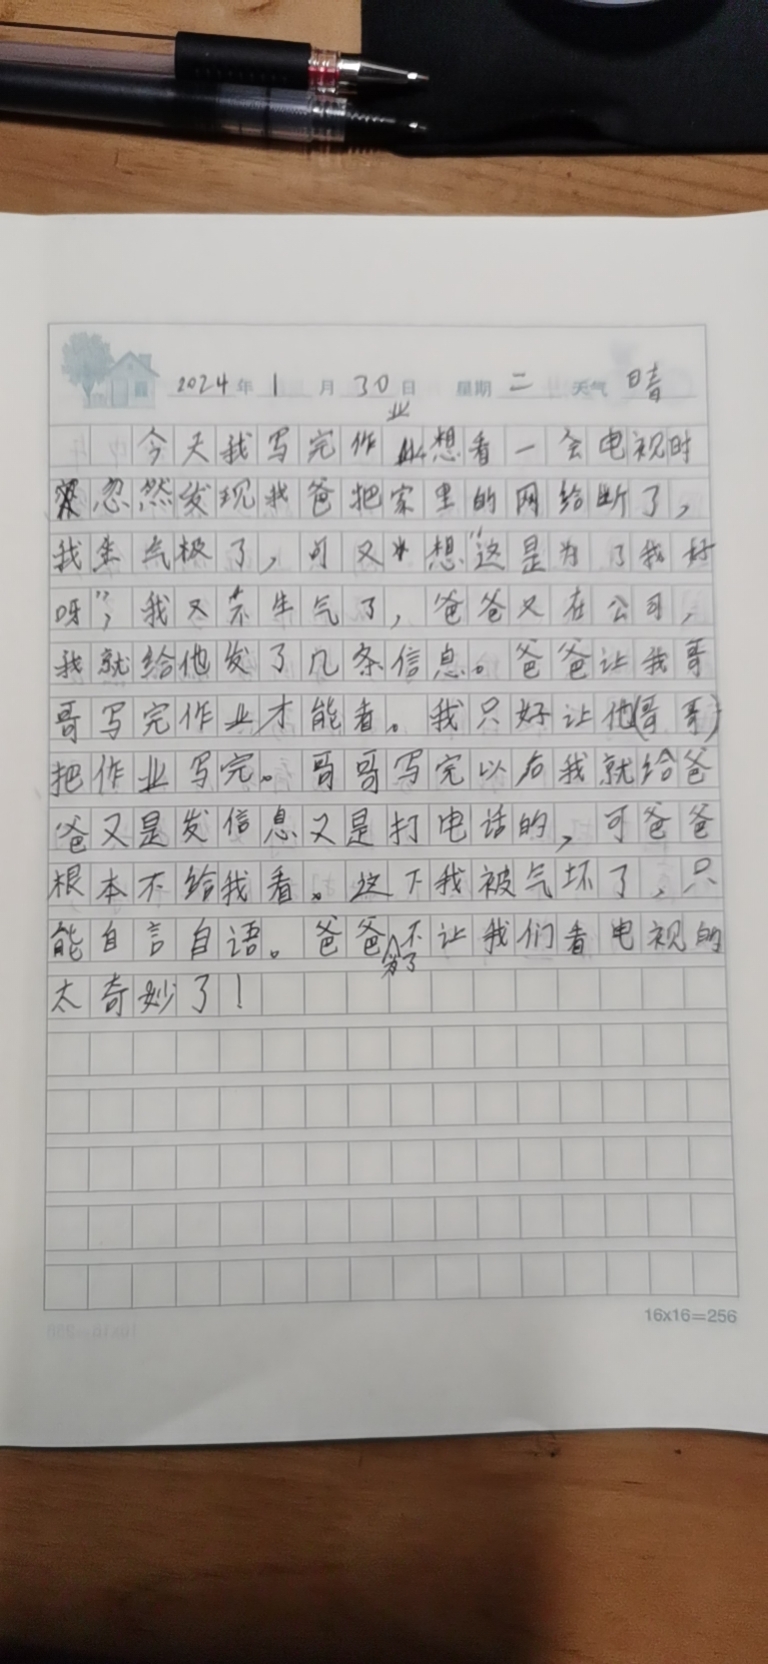 2024年1月30日 星期二 天气 晴
业
今天我写完作想看一会电视时
忽然发现我爸把家里的网给断了，
我生气极了，可又想“这是为了我好
呀”，我又不生气了，爸爸又在公司，
我就给他发了几条信息。爸爸让我哥
哥写完作业才能看。我只好让他(哥哥)
把作业写完。哥哥写完以后我就给爸
爸又是发信息又是打电话的，可爸爸
根本不给我看。这下我被气坏了，只
能自言自语。爸爸不让我们看电视的
为了
太奇妙了！
16x16=256